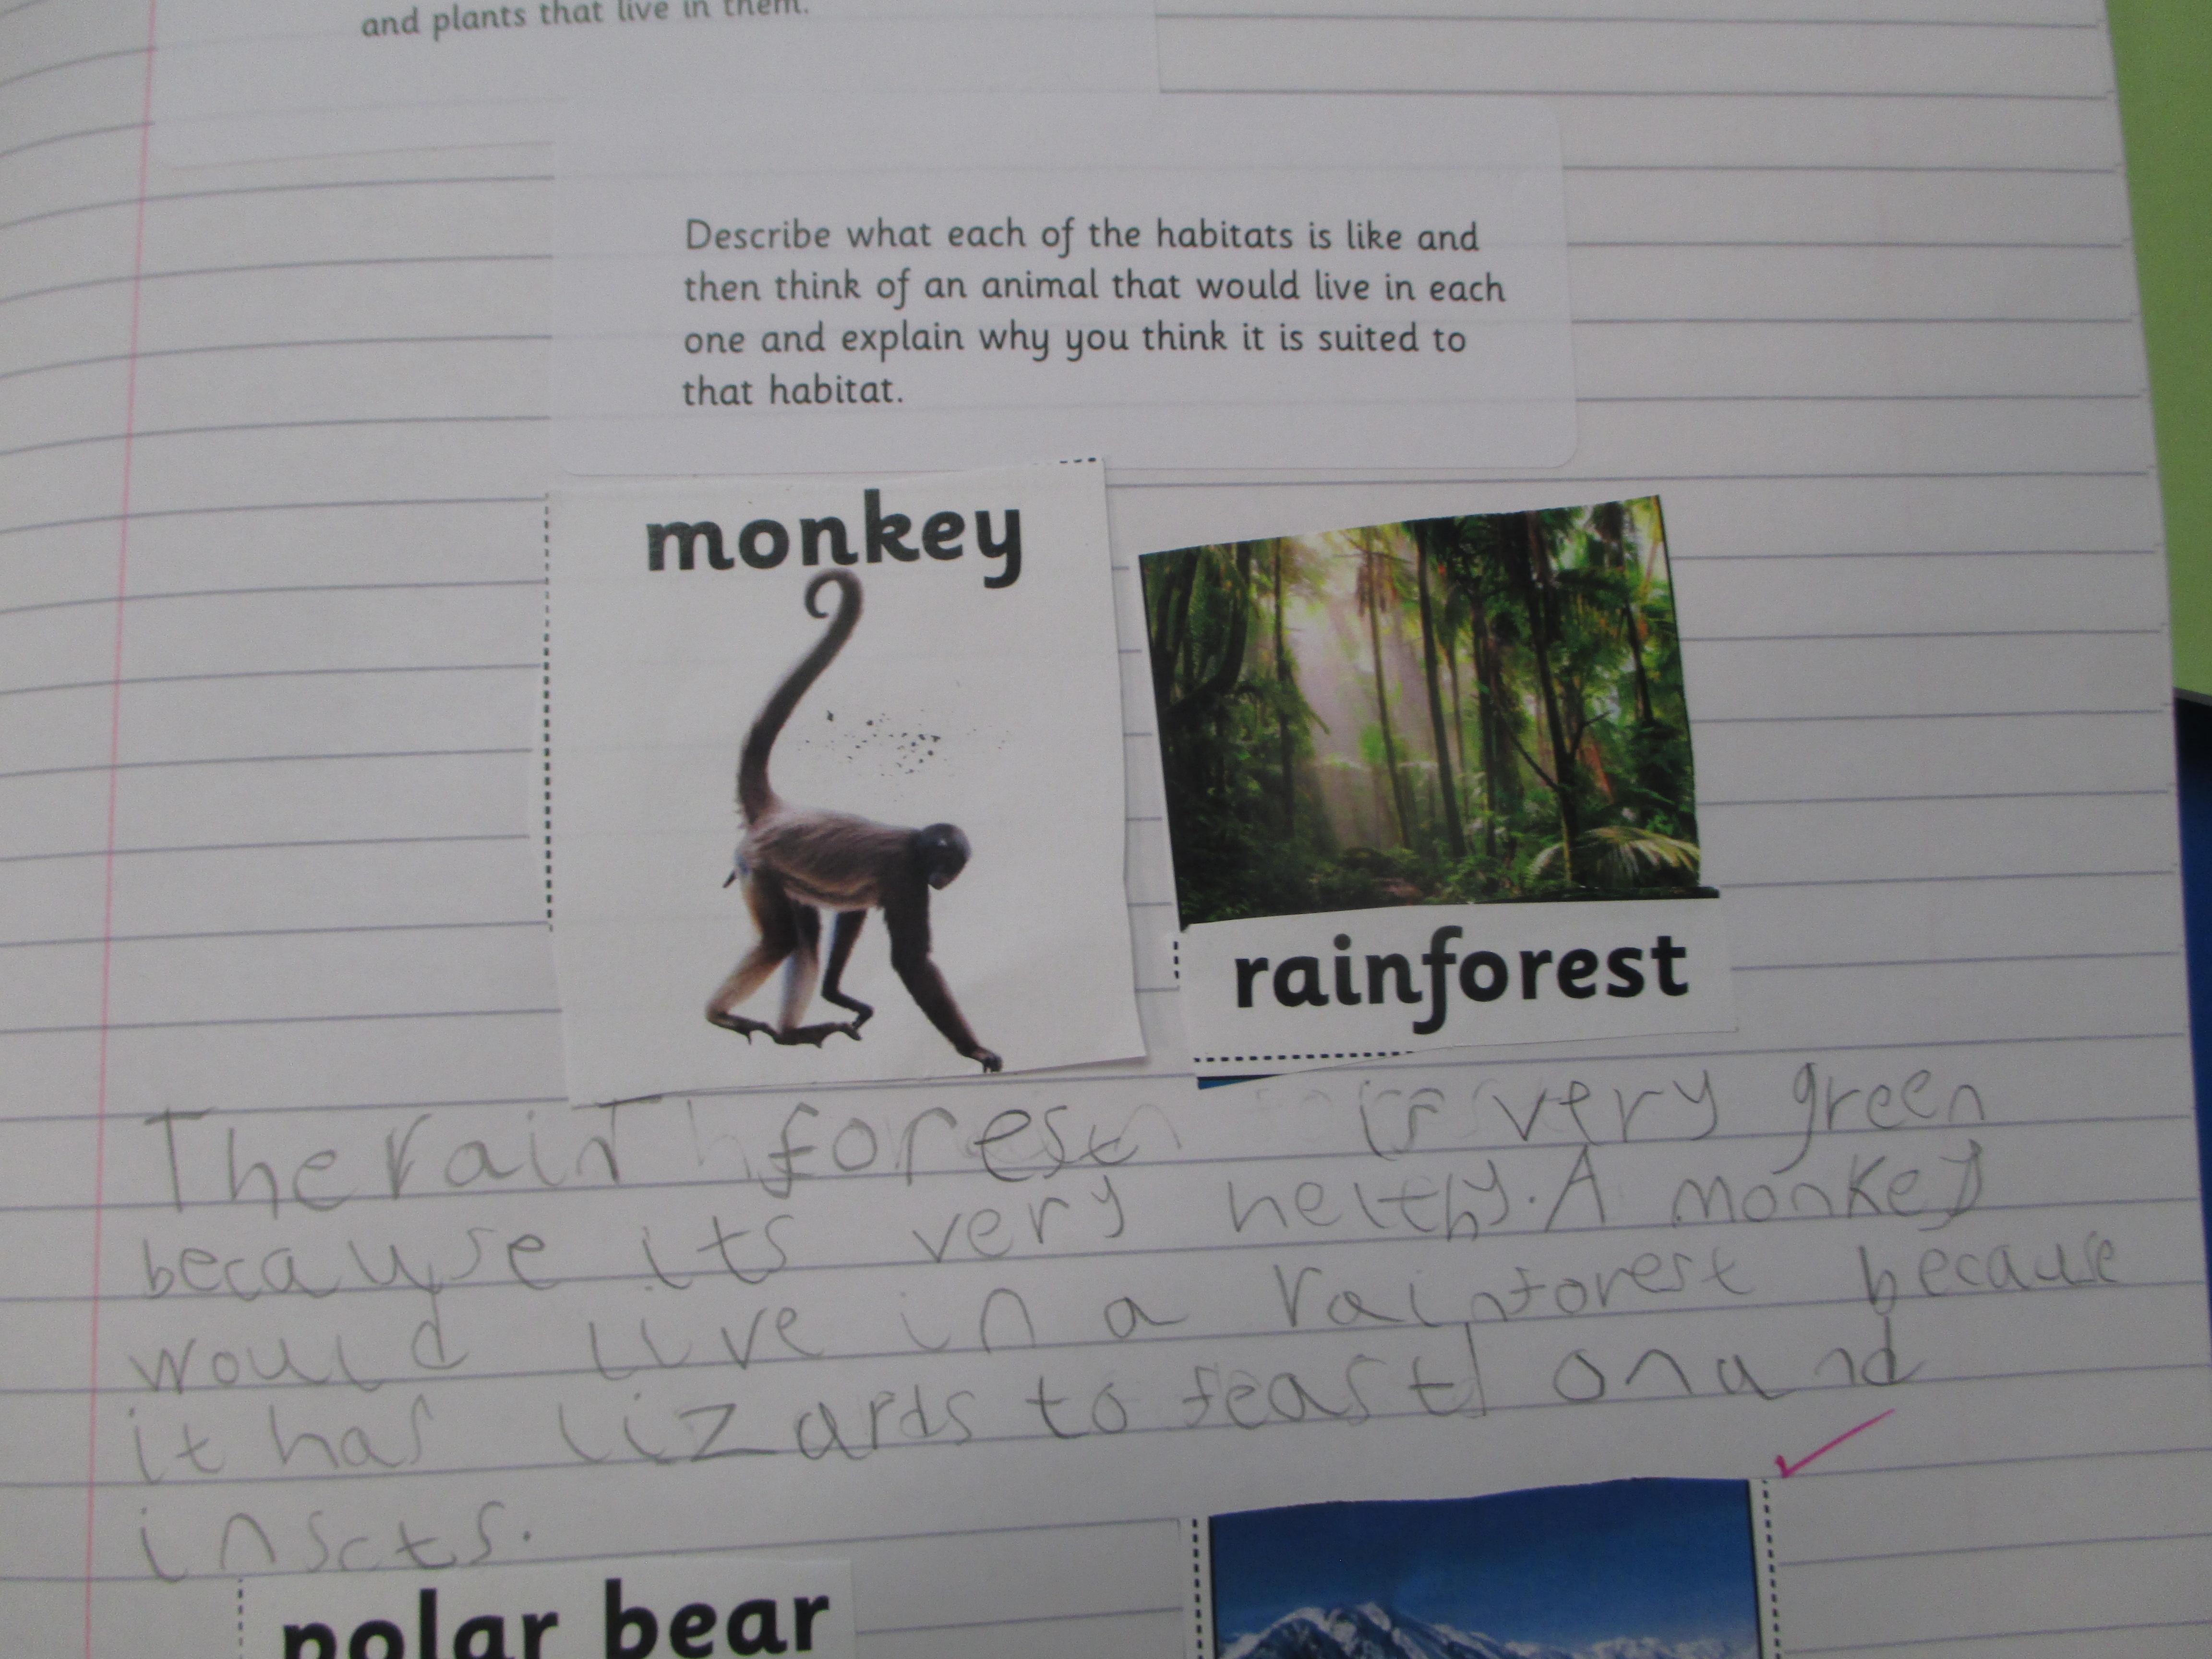 and plants that live in them.
Describe what each of the habitats is like and
then think of an animal that would live in each
one and explain why you think it is suited to
that habitat.
monkey
rainforest
The rain forest is very green
because its very helthy. A monkey
would live in a rainforest because
it has lizards to feast on and
inscts.
polar bear